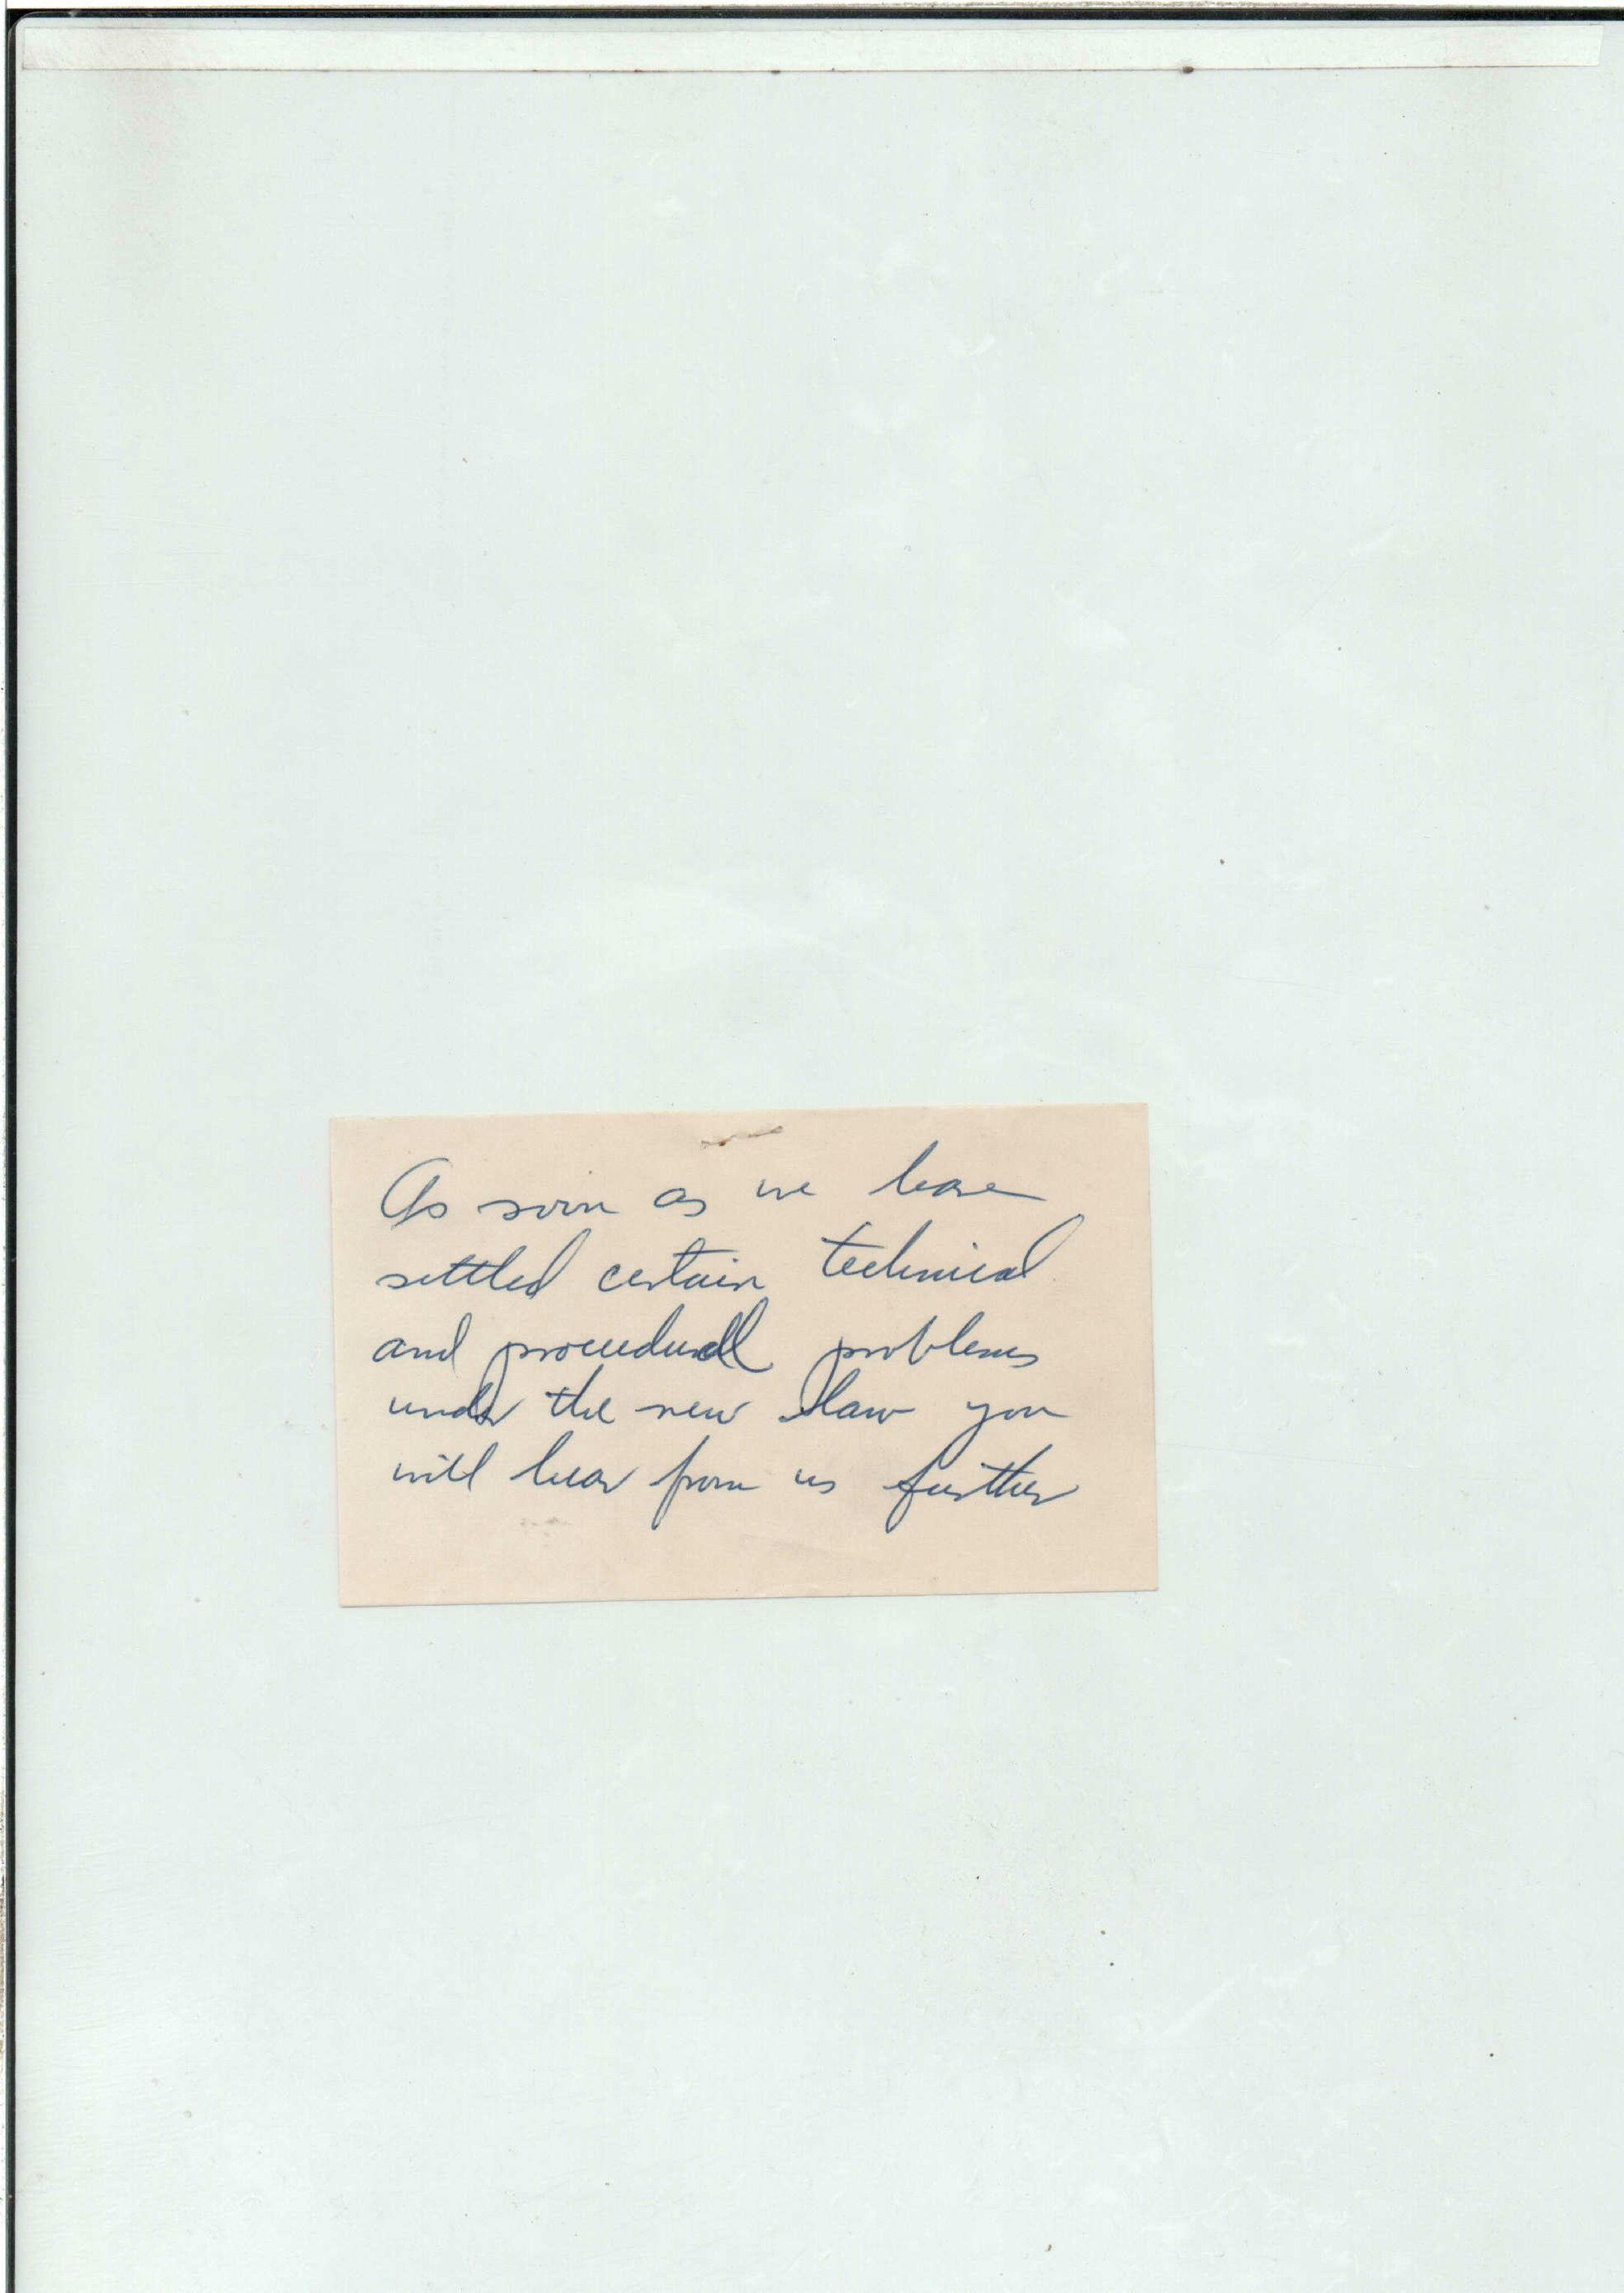 As soon as we have
settled certain technical
and procedural problems
under the new law you
will hear from us further